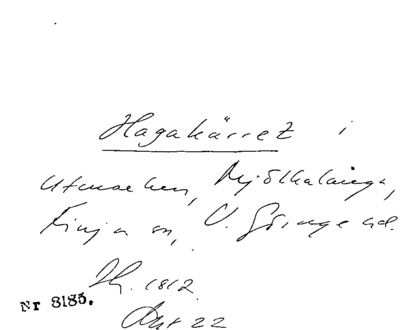 Hagakärret i
utmarken, Mjölkalånga,
Finja sn, V. Göinge hd.
1812.
Nr 8185.
Akt 22